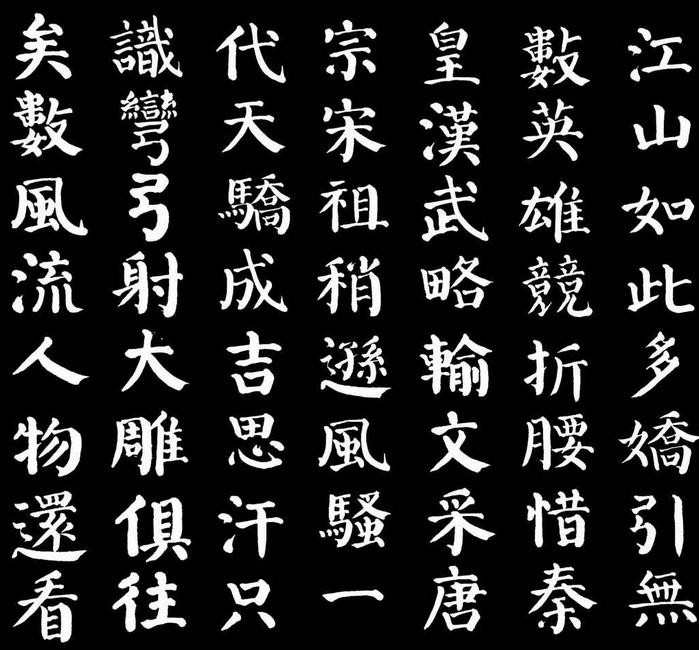 江山如此多嬌引無
數英雄競折腰惜秦
皇漢武略輸文采唐
宗宋祖稍遜風騷一
代天驕成吉思汗只
識彎弓射大雕俱往
矣數風流人物還看